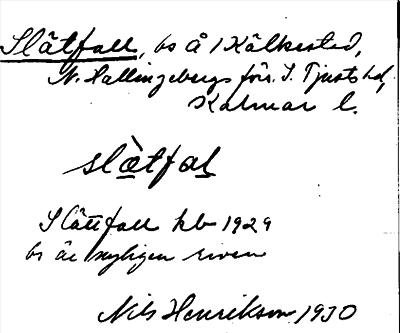 Slätfall, bs å 1 Kälkestad,
N. Hallingebergs förs. S. Tjusts hd,
Kalmar l.
slàtfal
Slättfall kb 1929
bs är nyligen riven
Nils Henrikson 1930